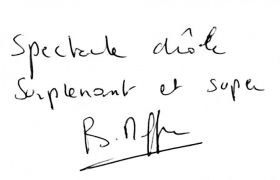 Spectacle drôle
Surprenant et super